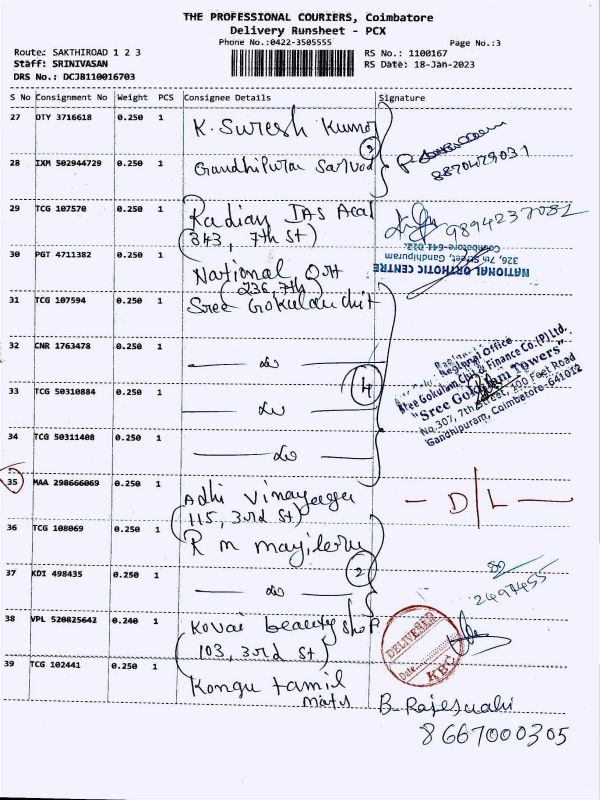 THE PROFESSIONAL COURIERS, Coimbatore
Delivery Runsheet - PCX
Phone No.:0422-3505555
Page No.:3
Route: SAKTHIROAD 1 2 3
RS No.: 1100167
Staff: SRINIVASAN
RS Date: 18-Jan-2023
DRS No.: DCJB110016703
S No Consignment No Weight PCS Consignee Details Signature
27 OTY 3716618 0.250 1 K. Suresh Kumar
28 IXM 502944729 0.250 1 Gandhipuram
2
8870429031
29 TCG 107570 0.250 1 Radian IAS Acad
(343, 7th St)
9894237082
30 PGT 4711382 0.250 1 National Ort
(236, 7th)
NATIONAL ORTHOTIC CENTRE
326, 7th Street, Gandhipuram
Coimbatore-641 012.
31 TCG 107594 0.250 1 Sree Gokulam Chit
32 CNR 1763478 0.250 1 — do —
4
33 TCG 50310884 0.250 1 — do —
34 TCG 50311408 0.250 1 — do —
Regional Office
Sree Gokulam Chit & Finance Co.(P) Ltd.
"Sree Gokulam Towers"
No.307, 7th Street, 100 Feet Road
Gandhipuram, Coimbatore-641012
35 MAA 298666069 0.250 1 Adhi Vinayaga
(115, 3rd St)
— D/L —
36 TCG 108069 0.250 1 R m mayileru
2
37 KDI 498435 0.250 1 — do —
2497455
38 VPL 520825642 0.240 1 Kovai beauty shop
(103, 3rd St)
DELIVERED
Date
KBC
39 TCG 102441 0.250 1 Kongu tamil
mats
B. Rajeswari
8667000305